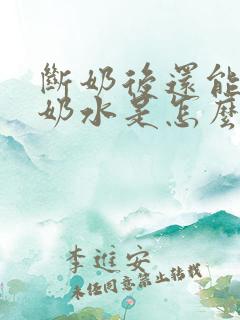 斷奶後還能
奶水是怎麼
李進安
未經同意禁止轉載